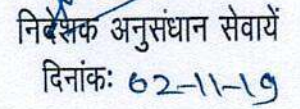 निदेशक अनुसंधान सेवायें
दिनांक: 02-11-19